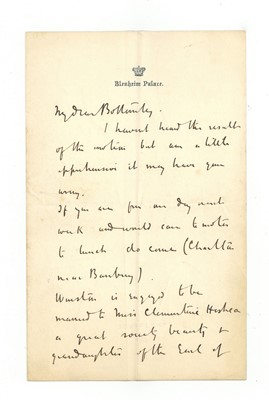 Blenheim Palace.
My dear Bottomley.
I havent heard the result
of the motion but am a little
apprehensive it may have gone
wrong.
If you are free one day next
week and would care to motor
to lunch do come (Charlton
near Banbury).
Winston is engaged to be
married to Miss Clementine Hozier
a great society beauty &
grandaughter of the Earl of